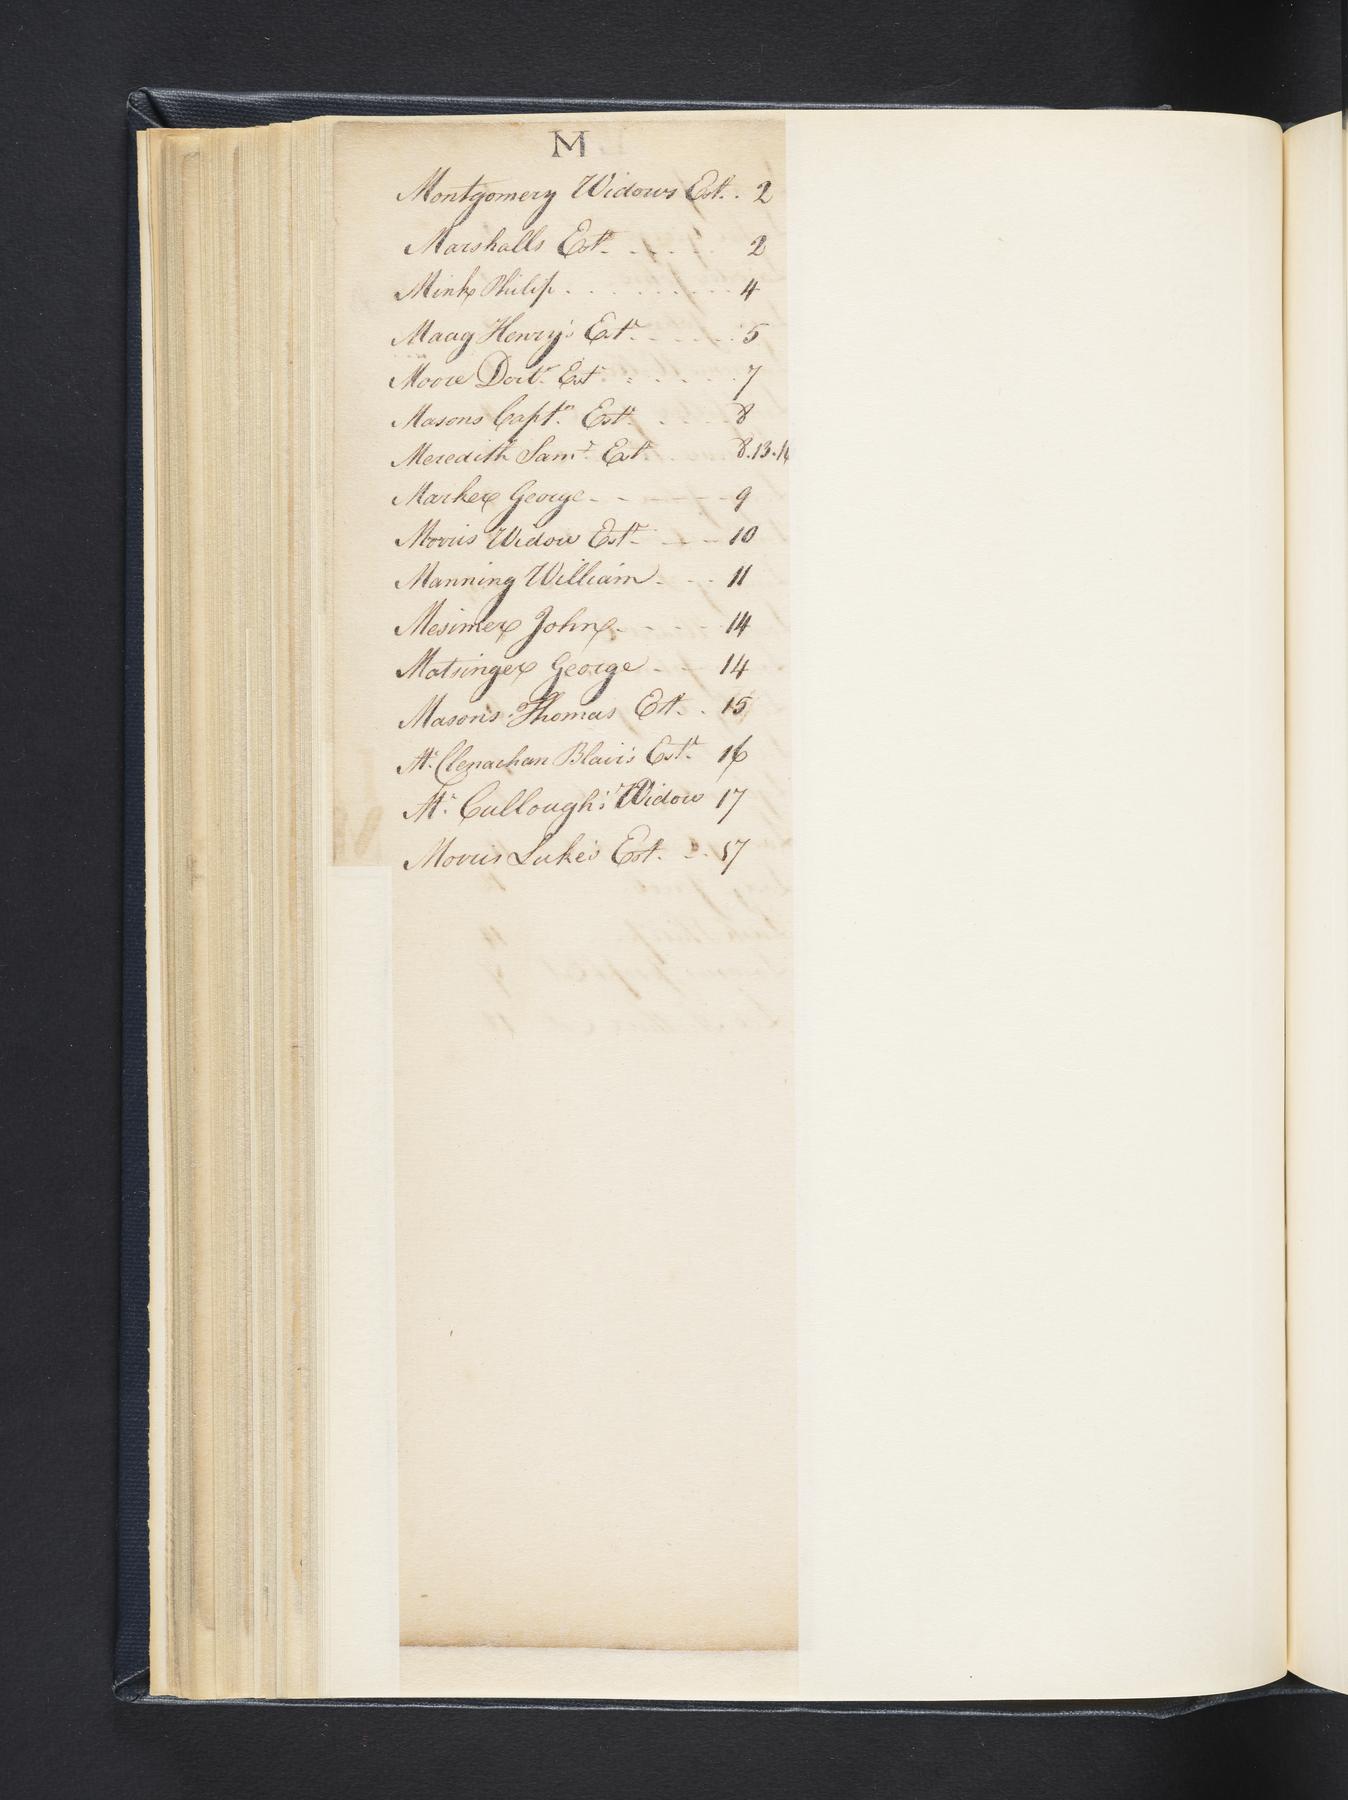 M
Montgomery Widows Est. . 2
Marshalls Est. . . . . 2
Mink Philip . . . . . . . . . 4
Maag Henry's Est. - . - . . . 5
Moore Doctr. Est . . . . . 7
Masons Captn. Est. . . . 8
Meredith Saml. Est 8.13.14
Marker George - - - - - 9
Morris Widow Est. - - - 10
Manning William - - . 11
Mesimer John - - - - 14
Matsinger George - - 14
Masons Thomas Est. . 15
Mc. Clenachan Blair's Est. 16
Mc. Cullough's Widow 17
Morris Luke's Est. - . 17